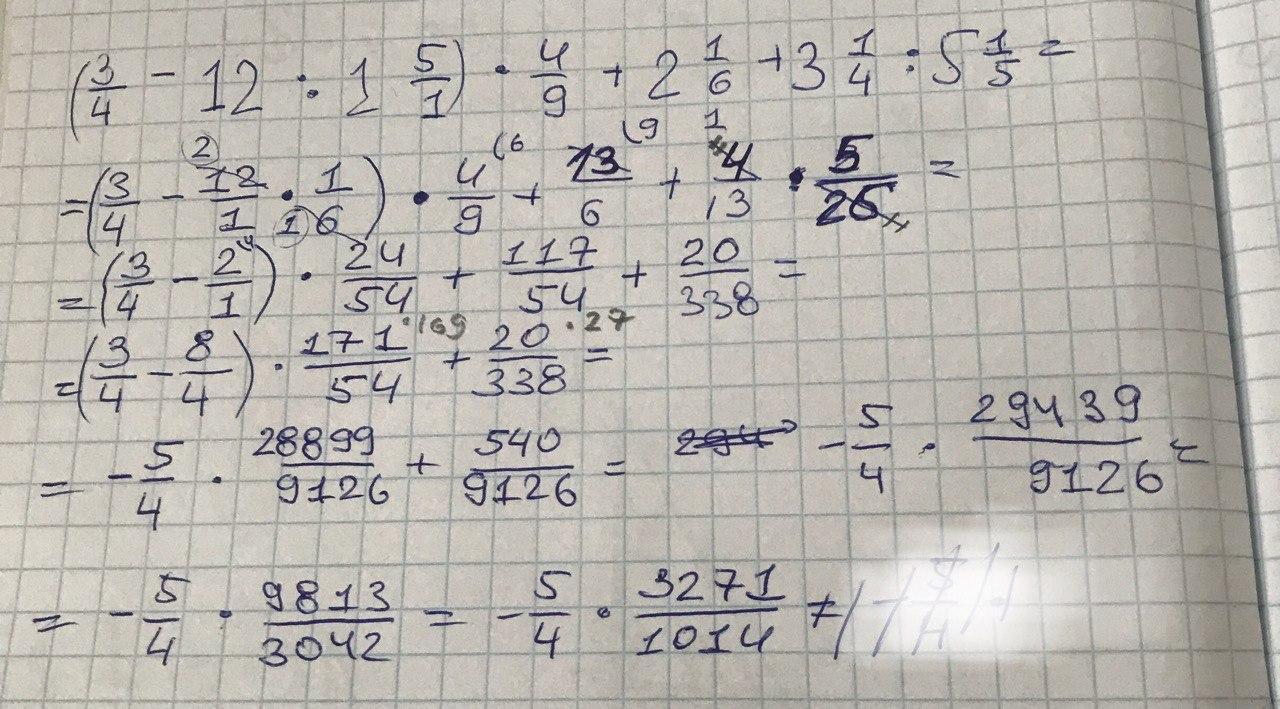 (3/4 - 12 : 1 5/1) · 4/9 + 2 1/6 + 3 1/4 : 5 1/5 =
= (3/4 - 12/1 (2 · 1/6 (1) · 4/9 (6 + 13/6 (9 + 4/13 1 · 5/26 =
= (3/4 - 2/1 4) · 24/54 + 117/54 + 20/338 =
= (3/4 - 8/4) · 171/54 ·169 + 20/338 ·27 =
= - 5/4 · 28899/9126 + 540/9126 = - 5/4 · 29439/9126 =
= - 5/4 · 9813/3042 = - 5/4 · 3271/1014 ≠